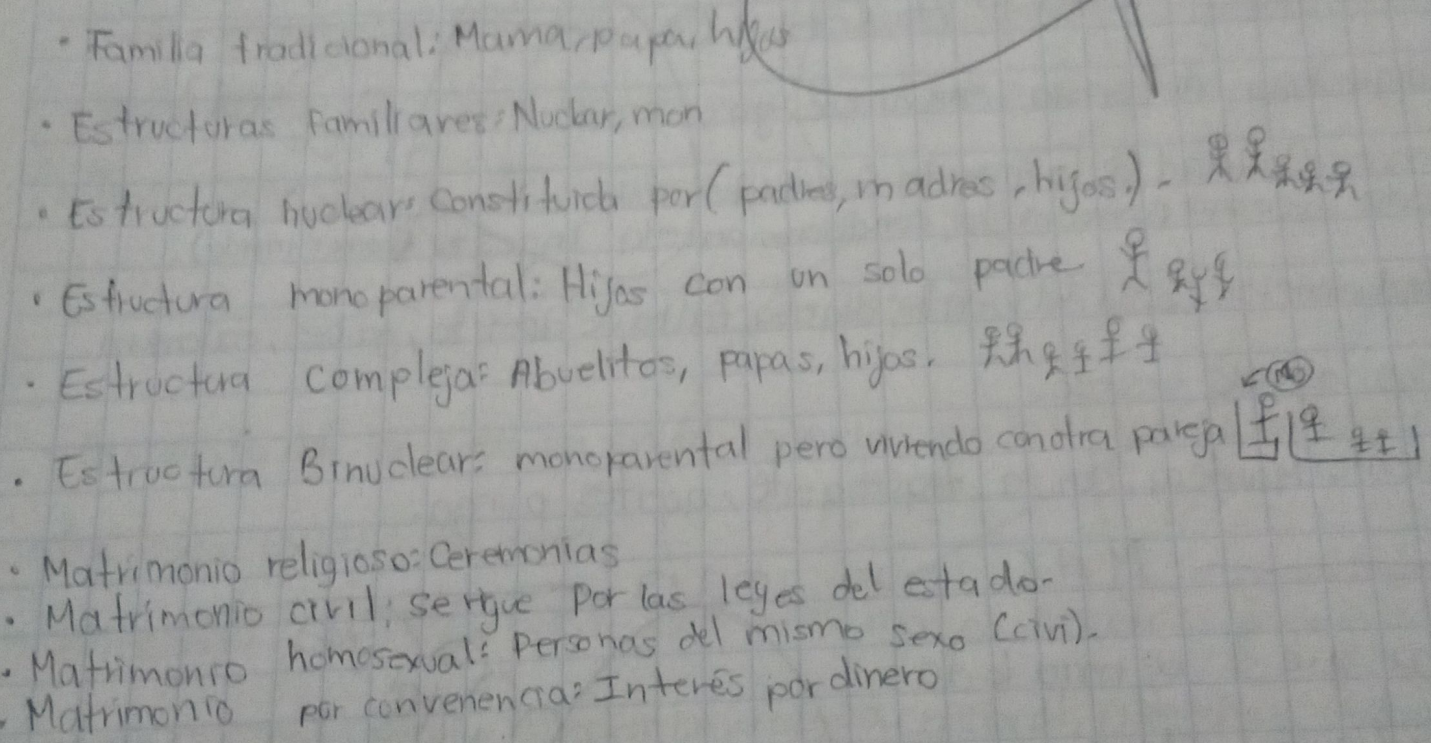 · Familia tradicional: Mama, papa, hijos
· Estructuras Familiares: Nuclar, mon
· Estructura nuclear: Constituida por ( padres, madres, hijos.) -
· Estructura monoparental: Hijos con un solo padre
· Estructura compleja: Abuelitos, papas, hijos.
· Estructura Binuclear: monoparental pero viviendo con otra pareja
· Matrimonio religioso: Ceremonias
· Matrimonio civil: se rigue Por las leyes del estado-
· Matrimonio homosexual: Personas del mismo sexo (civi)-
· Matrimonio por convenencia: Interés por dinero